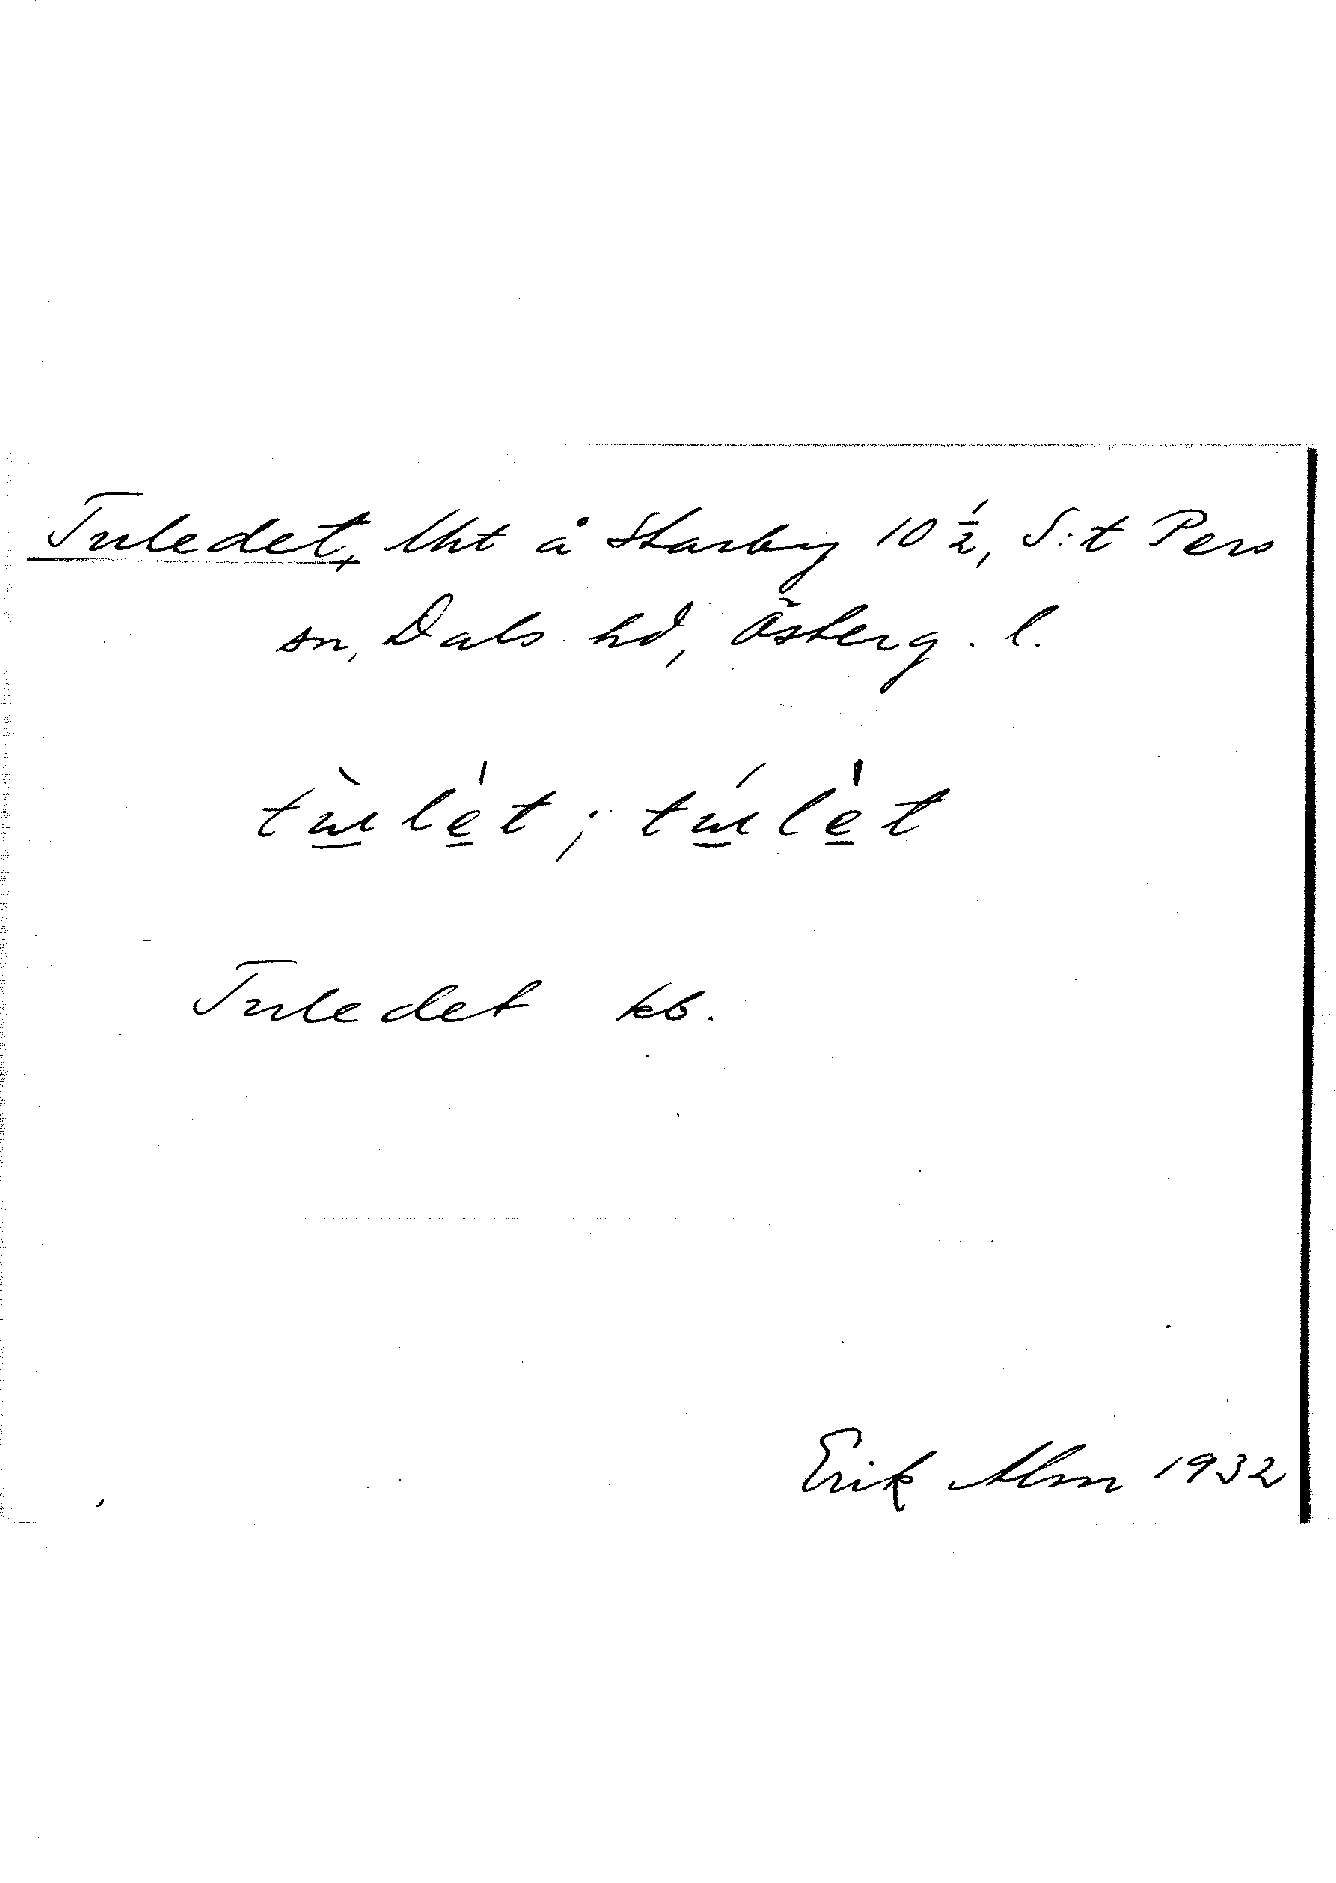 Tuledet, lht å Starby 10 ½, S:t Pers
sn, Dals hd, Österg. l.
tùlét; túlèt
Tuledet kb.
Erik Alm 1932